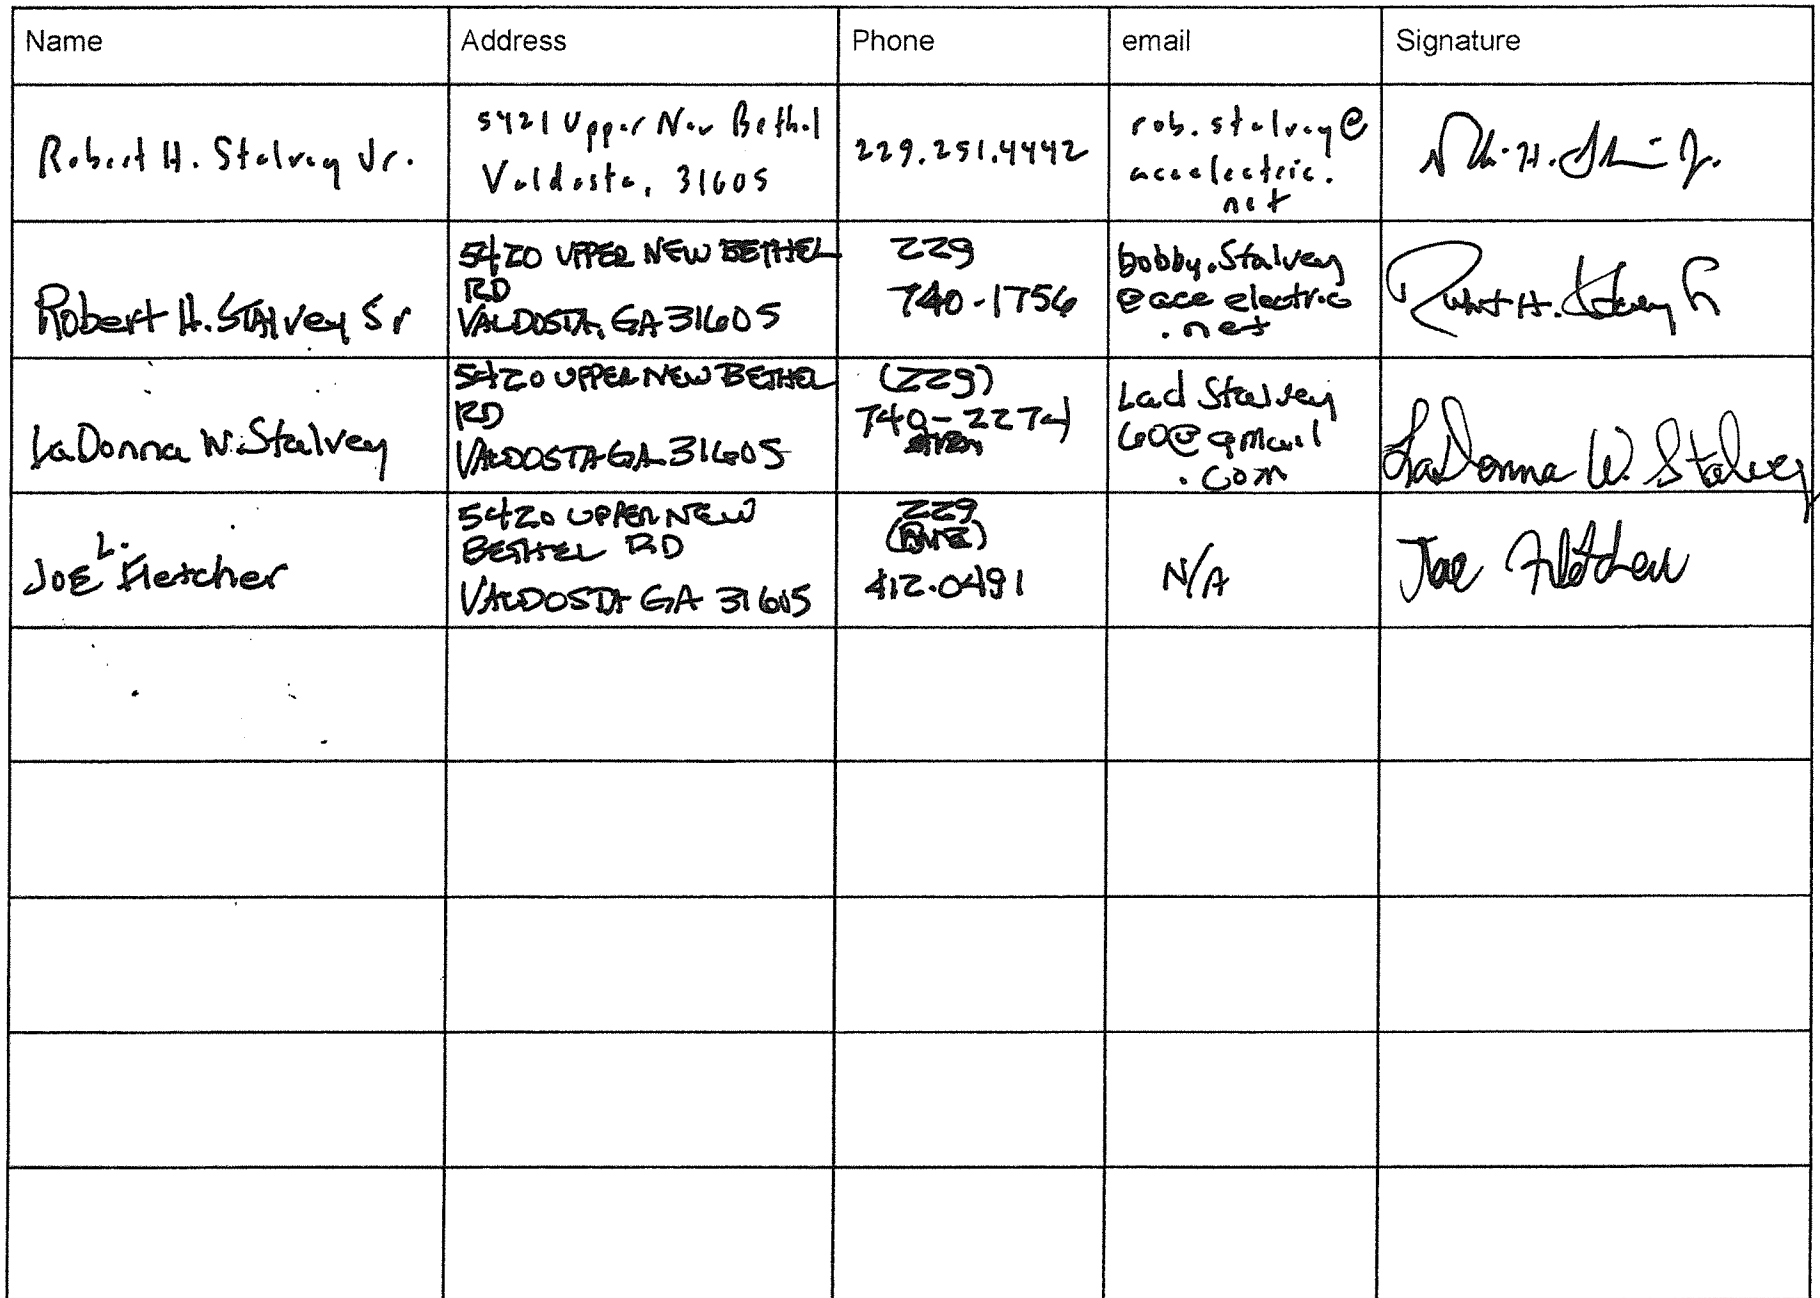 Name Address Phone email Signature
Robert H. Stalvey Jr.
5421 Upper New Bethel
Valdosta, 31605
229.251.4442
rob.stalvey@
aceelectric.
net
Robert H. Stalvey Sr
5420 UPPER NEW BETHEL
RD
VALDOSTA, GA 31605
229
740-1756
bobby.Stalvey
@ace electric
.net
Robert H. Stalvey Sr
LaDonna W. Stalvey
5420 UPPER NEW BETHEL
RD
VALDOSTA GA 31605
(229)
740-2274
Lad Stalvey
60@gmail
.com
LaDonna W. Stalvey
JOE L. Fletcher
5420 UPPER NEW
BETHEL RD
VALDOSTA GA 31605
229
412-0491
N/A
Joe Fletcher